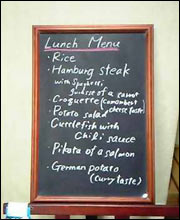 Lunch Menu
・Rice
・Hamburg steak
with Spaghetti
guidsse of a carrot
・Croquette (camembert
cheese taste)
・Potato salad
・Cuttlefish with
Chili sauce
・Pikata of a salmon
・German potato
(curry taste)